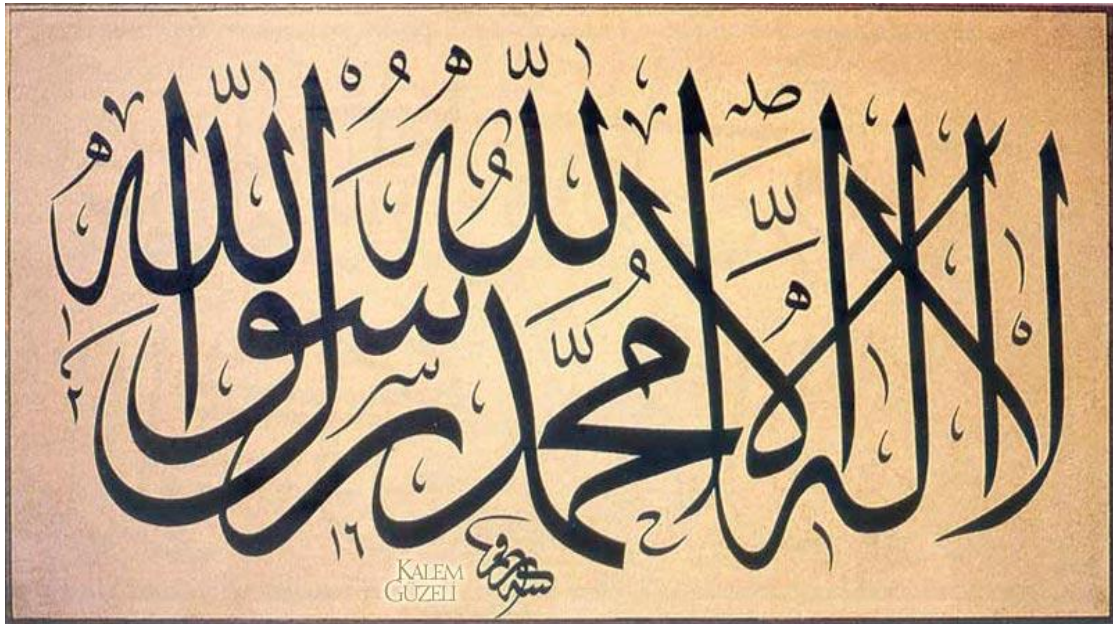 لا اله الا الله محمد رسول الله
١٢
١٦
KALEM
GÜZELI